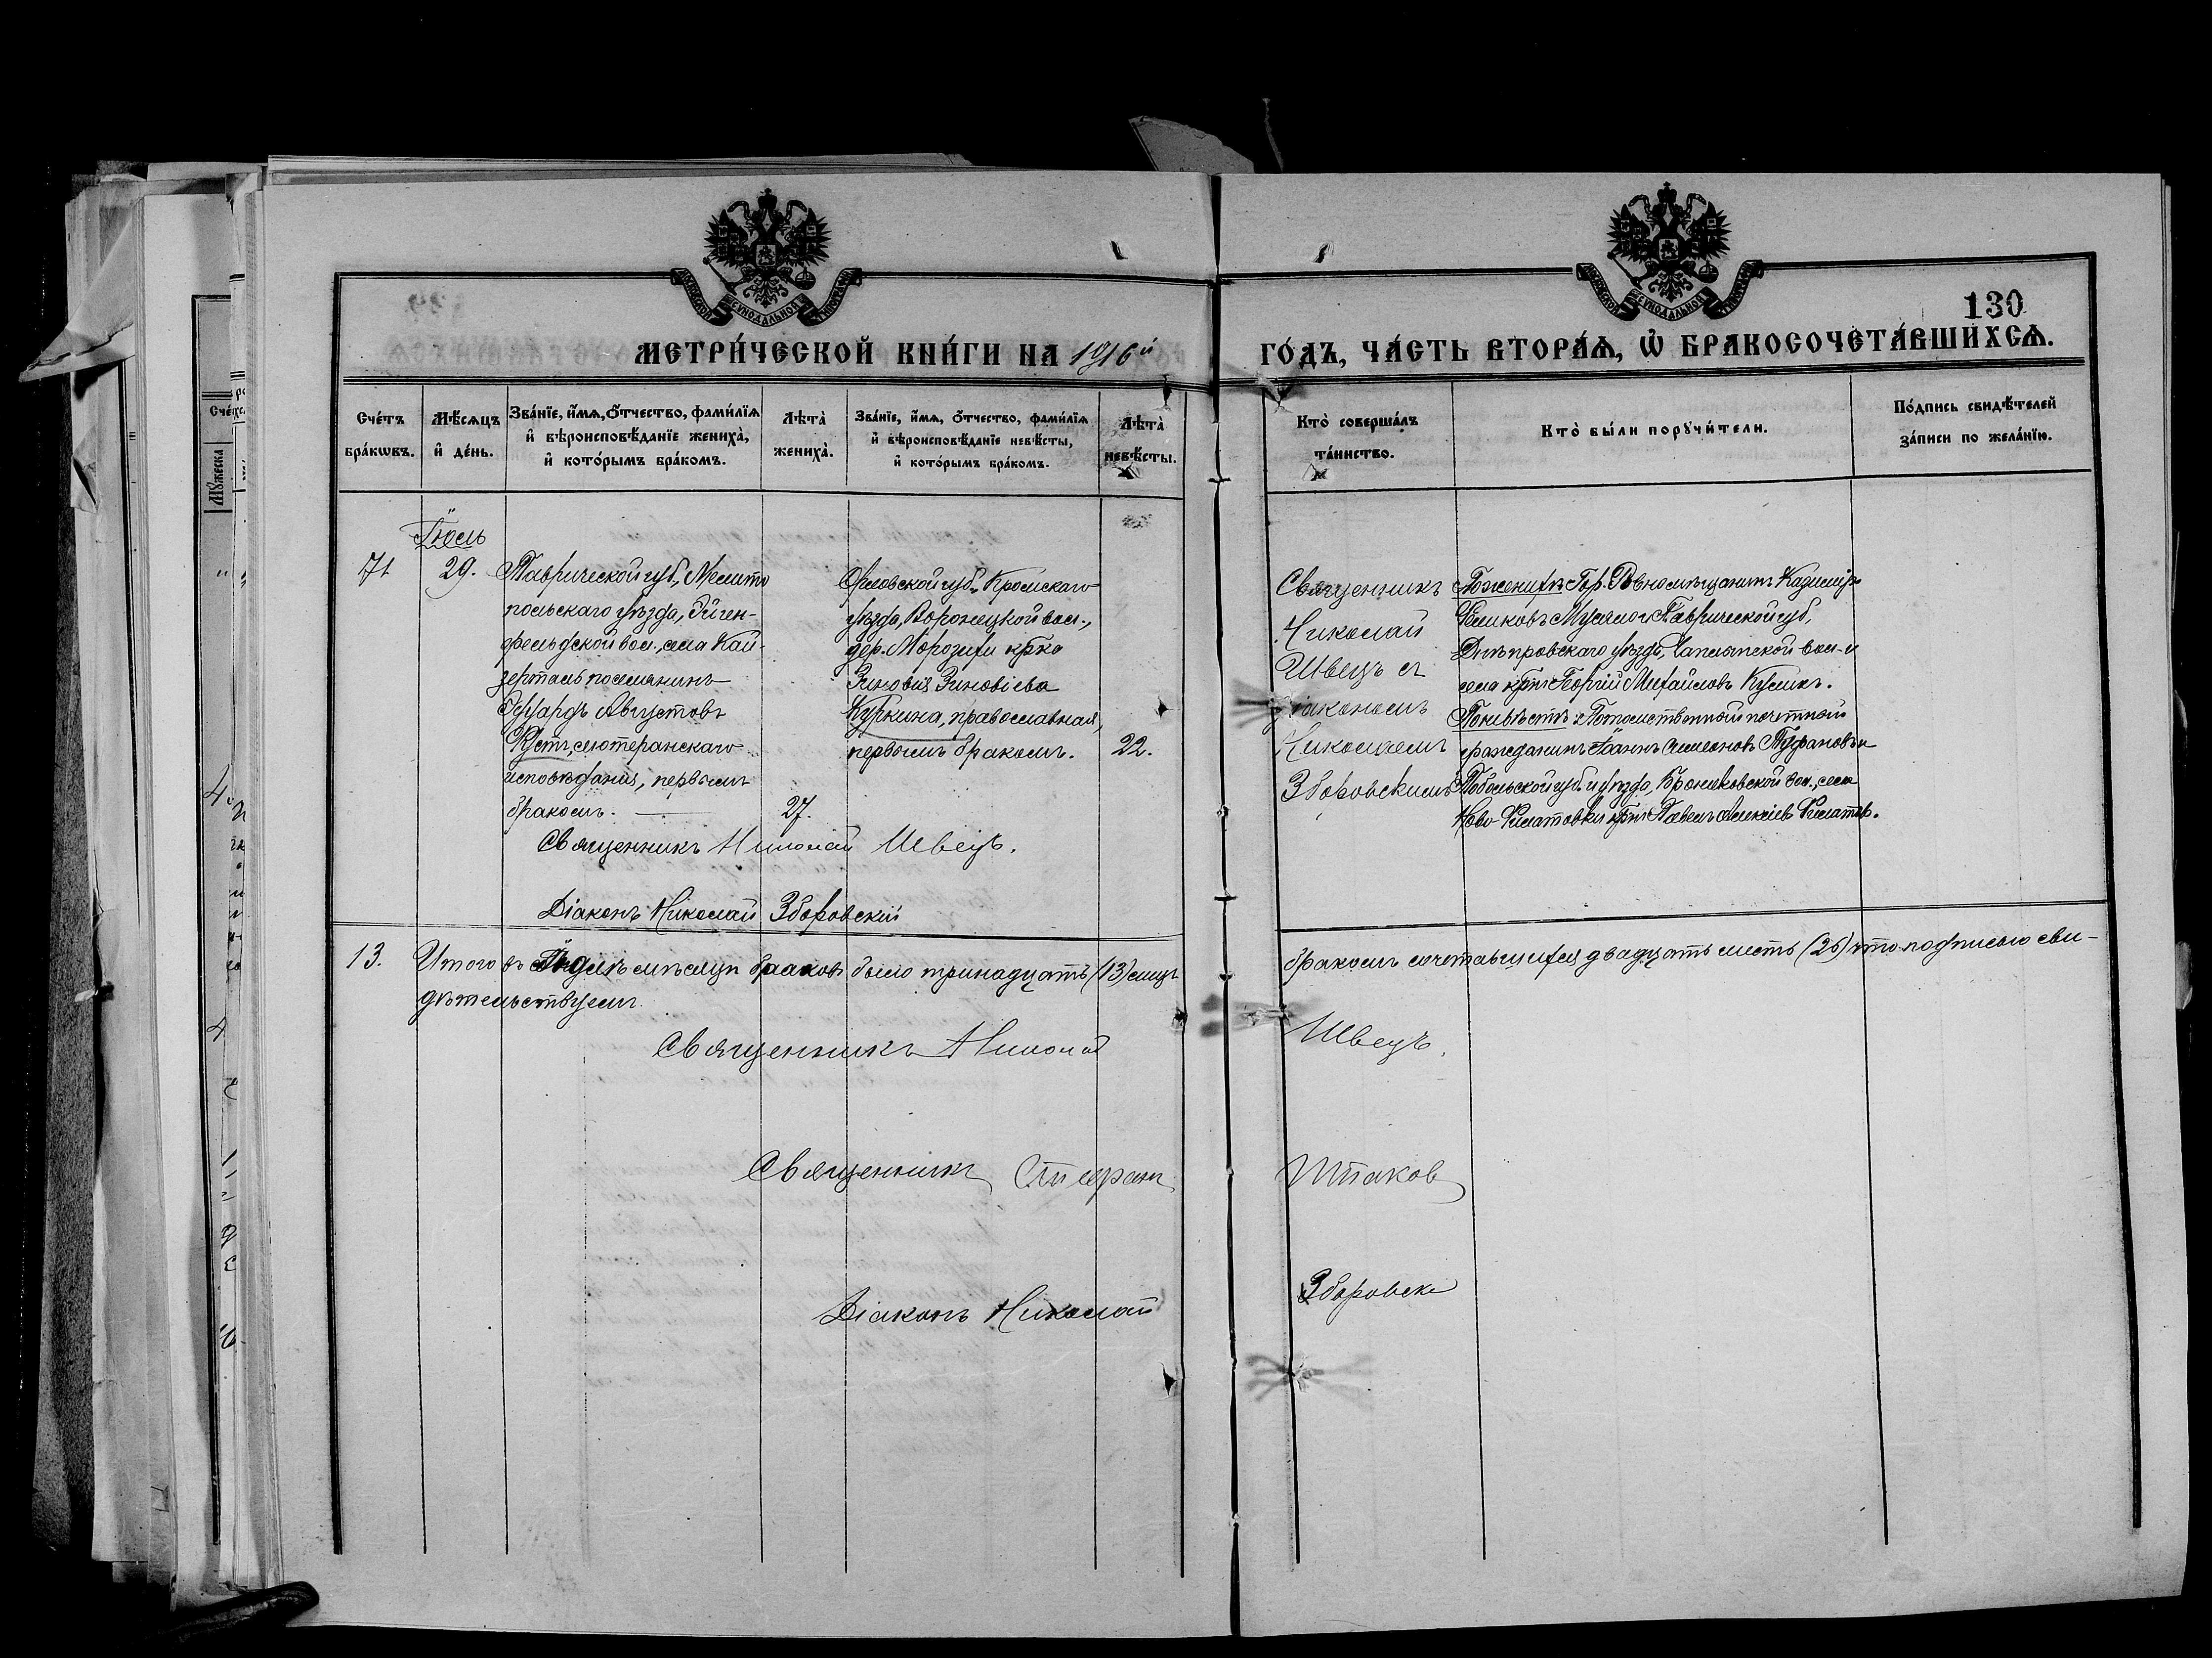 130
МЕТРИ́ЧЕСКОЙ КНИ́ГИ НА 1916й
ГО́ДЪ, ЧА́СТЬ ВТОРА́Ѧ, Ѽ БРАКОСОЧЕТА́ВШИХСѦ.
Сче́тъ бра́кѡвъ.
Мѣ́сяцъ и҆ де́нь.
Зва́нїе, и҆́мѧ, ѻ҆́тчество, фами́лїѧ
и҆ вѣроисповѣ́данїе жениха̀,
и҆ кото́рымъ бра́комъ.
Лѣта̀ жениха̀.
Зва́нїе, и҆́мѧ, ѻ҆́тчество, фами́лїѧ
и҆ вѣроисповѣ́данїе невѣ́сты,
и҆ кото́рымъ бра́комъ.
Лѣта̀ невѣ́сты.
Кто̀ соверша́лъ
та́инство.
Кто̀ бы́ли порꙋчи́тели.
По́дпись свидѣ́телей
за́писи по жела́нїю.
Іюль
71
29.
Таврической губ., Мелито
польскаго уѣзда, Эйген-
фельдской вол., села Кай-
зерталь поселянинъ
Эдуардъ Августовъ
Кустъ, лютеранскаго
исповѣданія, первымъ
бракомъ.
27.
Орловской губ., Кромскаго
уѣзда, Воронецкой вол.,
дер. Морозихи кр҃ка
Зиновія Зиновіева
Куркина, православная,
первымъ бракомъ.
22.
Священникъ
Николай
Швецъ съ
діакономъ
Николаемъ
Зборовскимъ
По женихѣ: Гор. Ровно мѣщанинъ Казимиръ
Феликовъ Мусял и Таврической губ,
Днѣпровскаго уѣзда, Чаплинской вол-и
села кр҃нъ Георгій Михайловъ Кулик.
По невѣстѣ: Потомственный почетный
гражданинъ Іоаннъ Симеоновъ Труфановъ и
Тобольской губ. и уѣзда, Бронниковской вол., села
Ново-Филатовки кр҃нъ Павелъ Алексіевъ Филатов.
Священникъ Николай Швецъ.
Діаконъ Николай Зборовскій
13. Итого въ Іюлѣ мѣсяцѣ браковъ было тринадцать (13) лицъ
бракомъ сочетавшихся двадцать шесть (26) что подписью сви-
дѣтельствуемъ
Священникъ Николай Швецъ.
Священникъ Шпаков
Діаконъ Николай Зборовскі